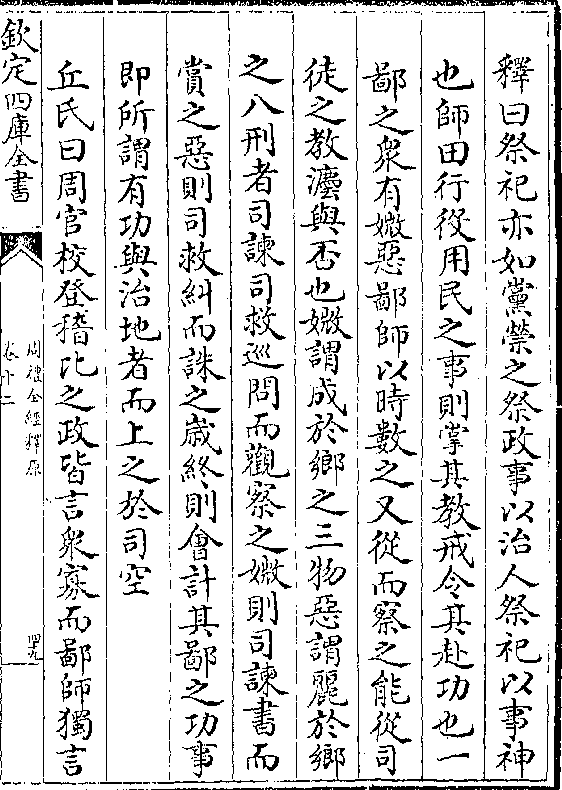 釋曰祭祀亦如黨禜之祭政事以治人祭祀以事神
也師田行役用民之事則掌其教戒令其赴功也一
鄙之衆有媺惡鄙師以時數之又從而察之能從司
徒之教灋與否也媺謂成於鄉之三物惡謂麗於鄉
之八刑者司諫司救巡問而觀察之媺則司諫書而
賞之惡則司救糾而誅之歲終則會計其鄙之功事
即所謂有功與治地者而上之於司空
丘氏曰周官校登稽比之政皆言衆寡而鄙師獨言
欽定四庫全書
周禮全經釋原
卷十二
四十九